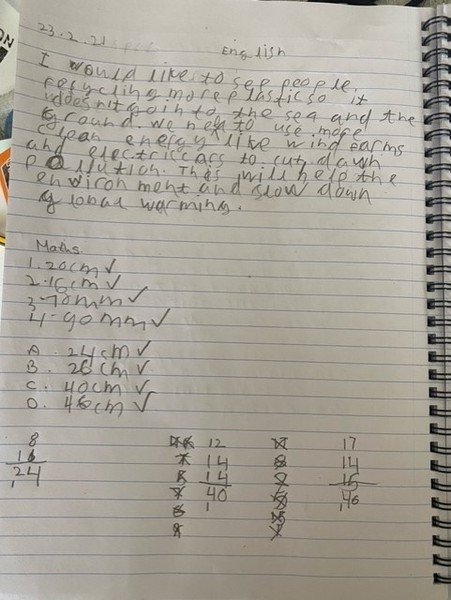 23.2.21
English
I would like to see people,
recycling more plastic so it
doesn't go into the sea and the
ground. we need to use more
clean energy like wind farms
and electric cars to cut down
pollution. This will help the
environment and slow down
global warming.
Maths
1. 20cm ✓
2. 16cm ✓
3-70mm ✓
4-90mm ✓
A. 24cm ✓
B. 26cm ✓
C. 40cm ✓
D. 46cm ✓
8
16
24
1
12
14
14
40
1
17
14
15
46
1